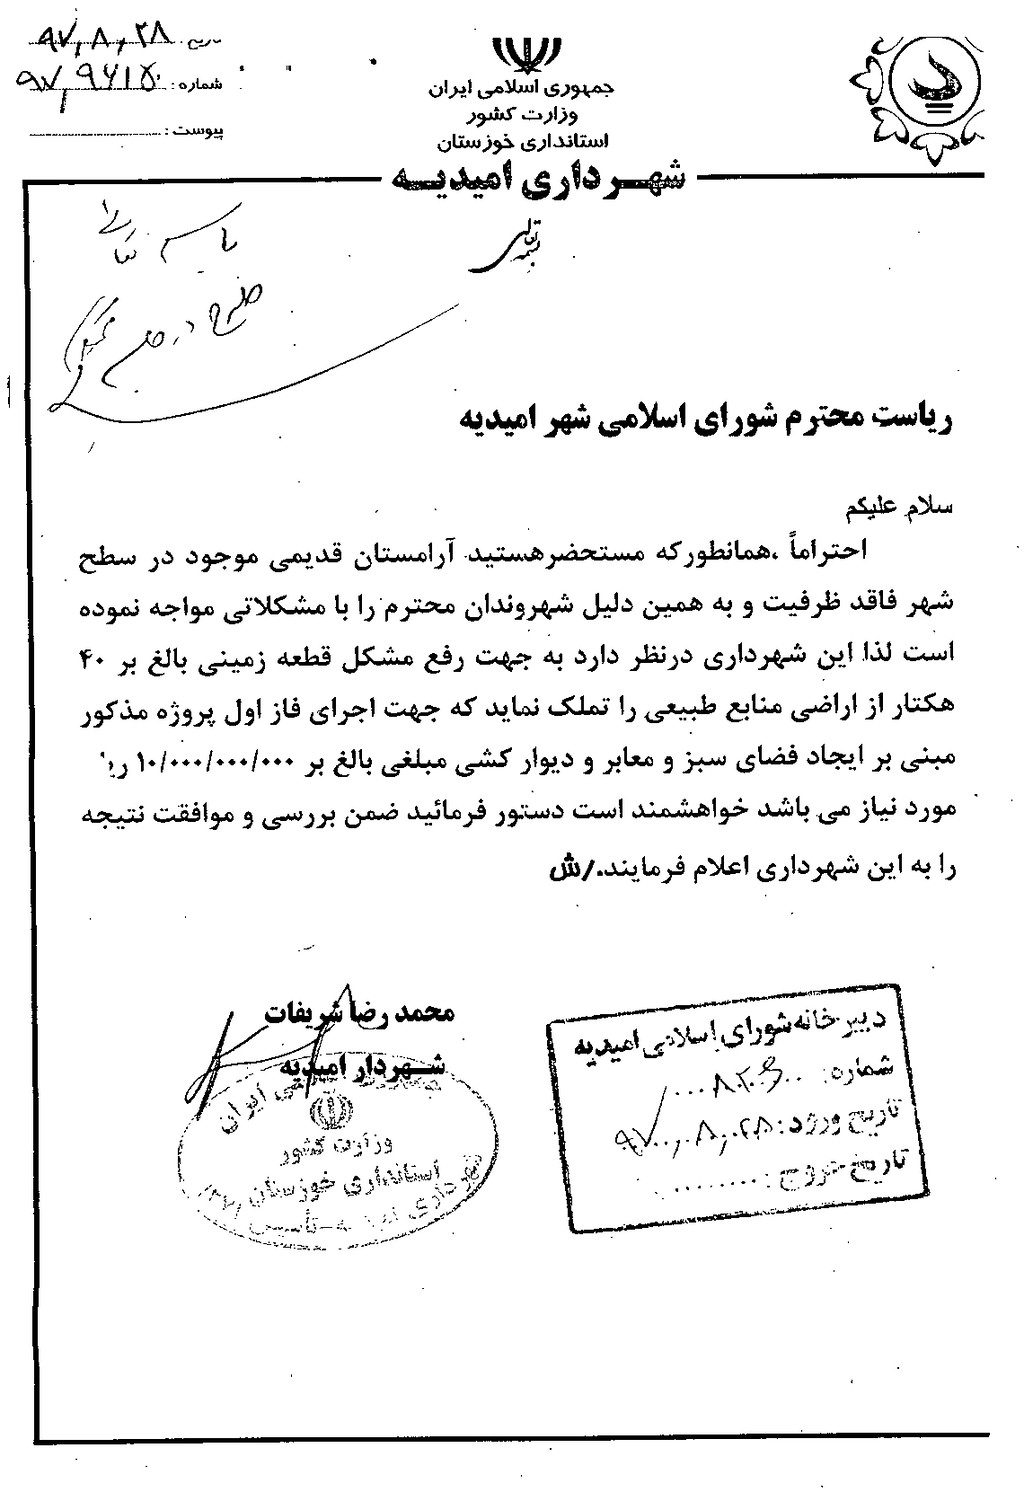 جمهوری اسلامی ایران
وزارت کشور
استانداری خوزستان
شهرداری امیدیه
تاریخ: ۹۷,۸,۲۸
شماره:
پیوست:
بسمه تعالی
ریاست محترم شورای اسلامی شهر امیدیه
سلام علیکم
احتراماً ،همانطورکه مستحضرهستید آرامستان قدیمی موجود در سطح
شهر فاقد ظرفیت و به همین دلیل شهروندان محترم را با مشکلاتی مواجه نموده
است لذا این شهرداری درنظر دارد به جهت رفع مشکل قطعه زمینی بالغ بر ۴۰
هکتار از اراضی منابع طبیعی را تملک نماید که جهت اجرای فاز اول پروژه مذکور
مبنی بر ایجاد فضای سبز و معابر و دیوار کشی مبلغی بالغ بر ۱۰/۰۰۰/۰۰۰/۰۰۰
مورد نیاز می باشد خواهشمند است دستور فرمائید ضمن بررسی و موافقت نتیجه
را به این شهرداری اعلام فرمایند./ش
محمد رضا شریفات
شهردار امیدیه
وزارت کشور
استانداری خوزستان
دبیرخانه شورای اسلامی امیدیه
شماره:
تاریخ ورود: ۹۷,۸,۲۸
تاریخ خروج: